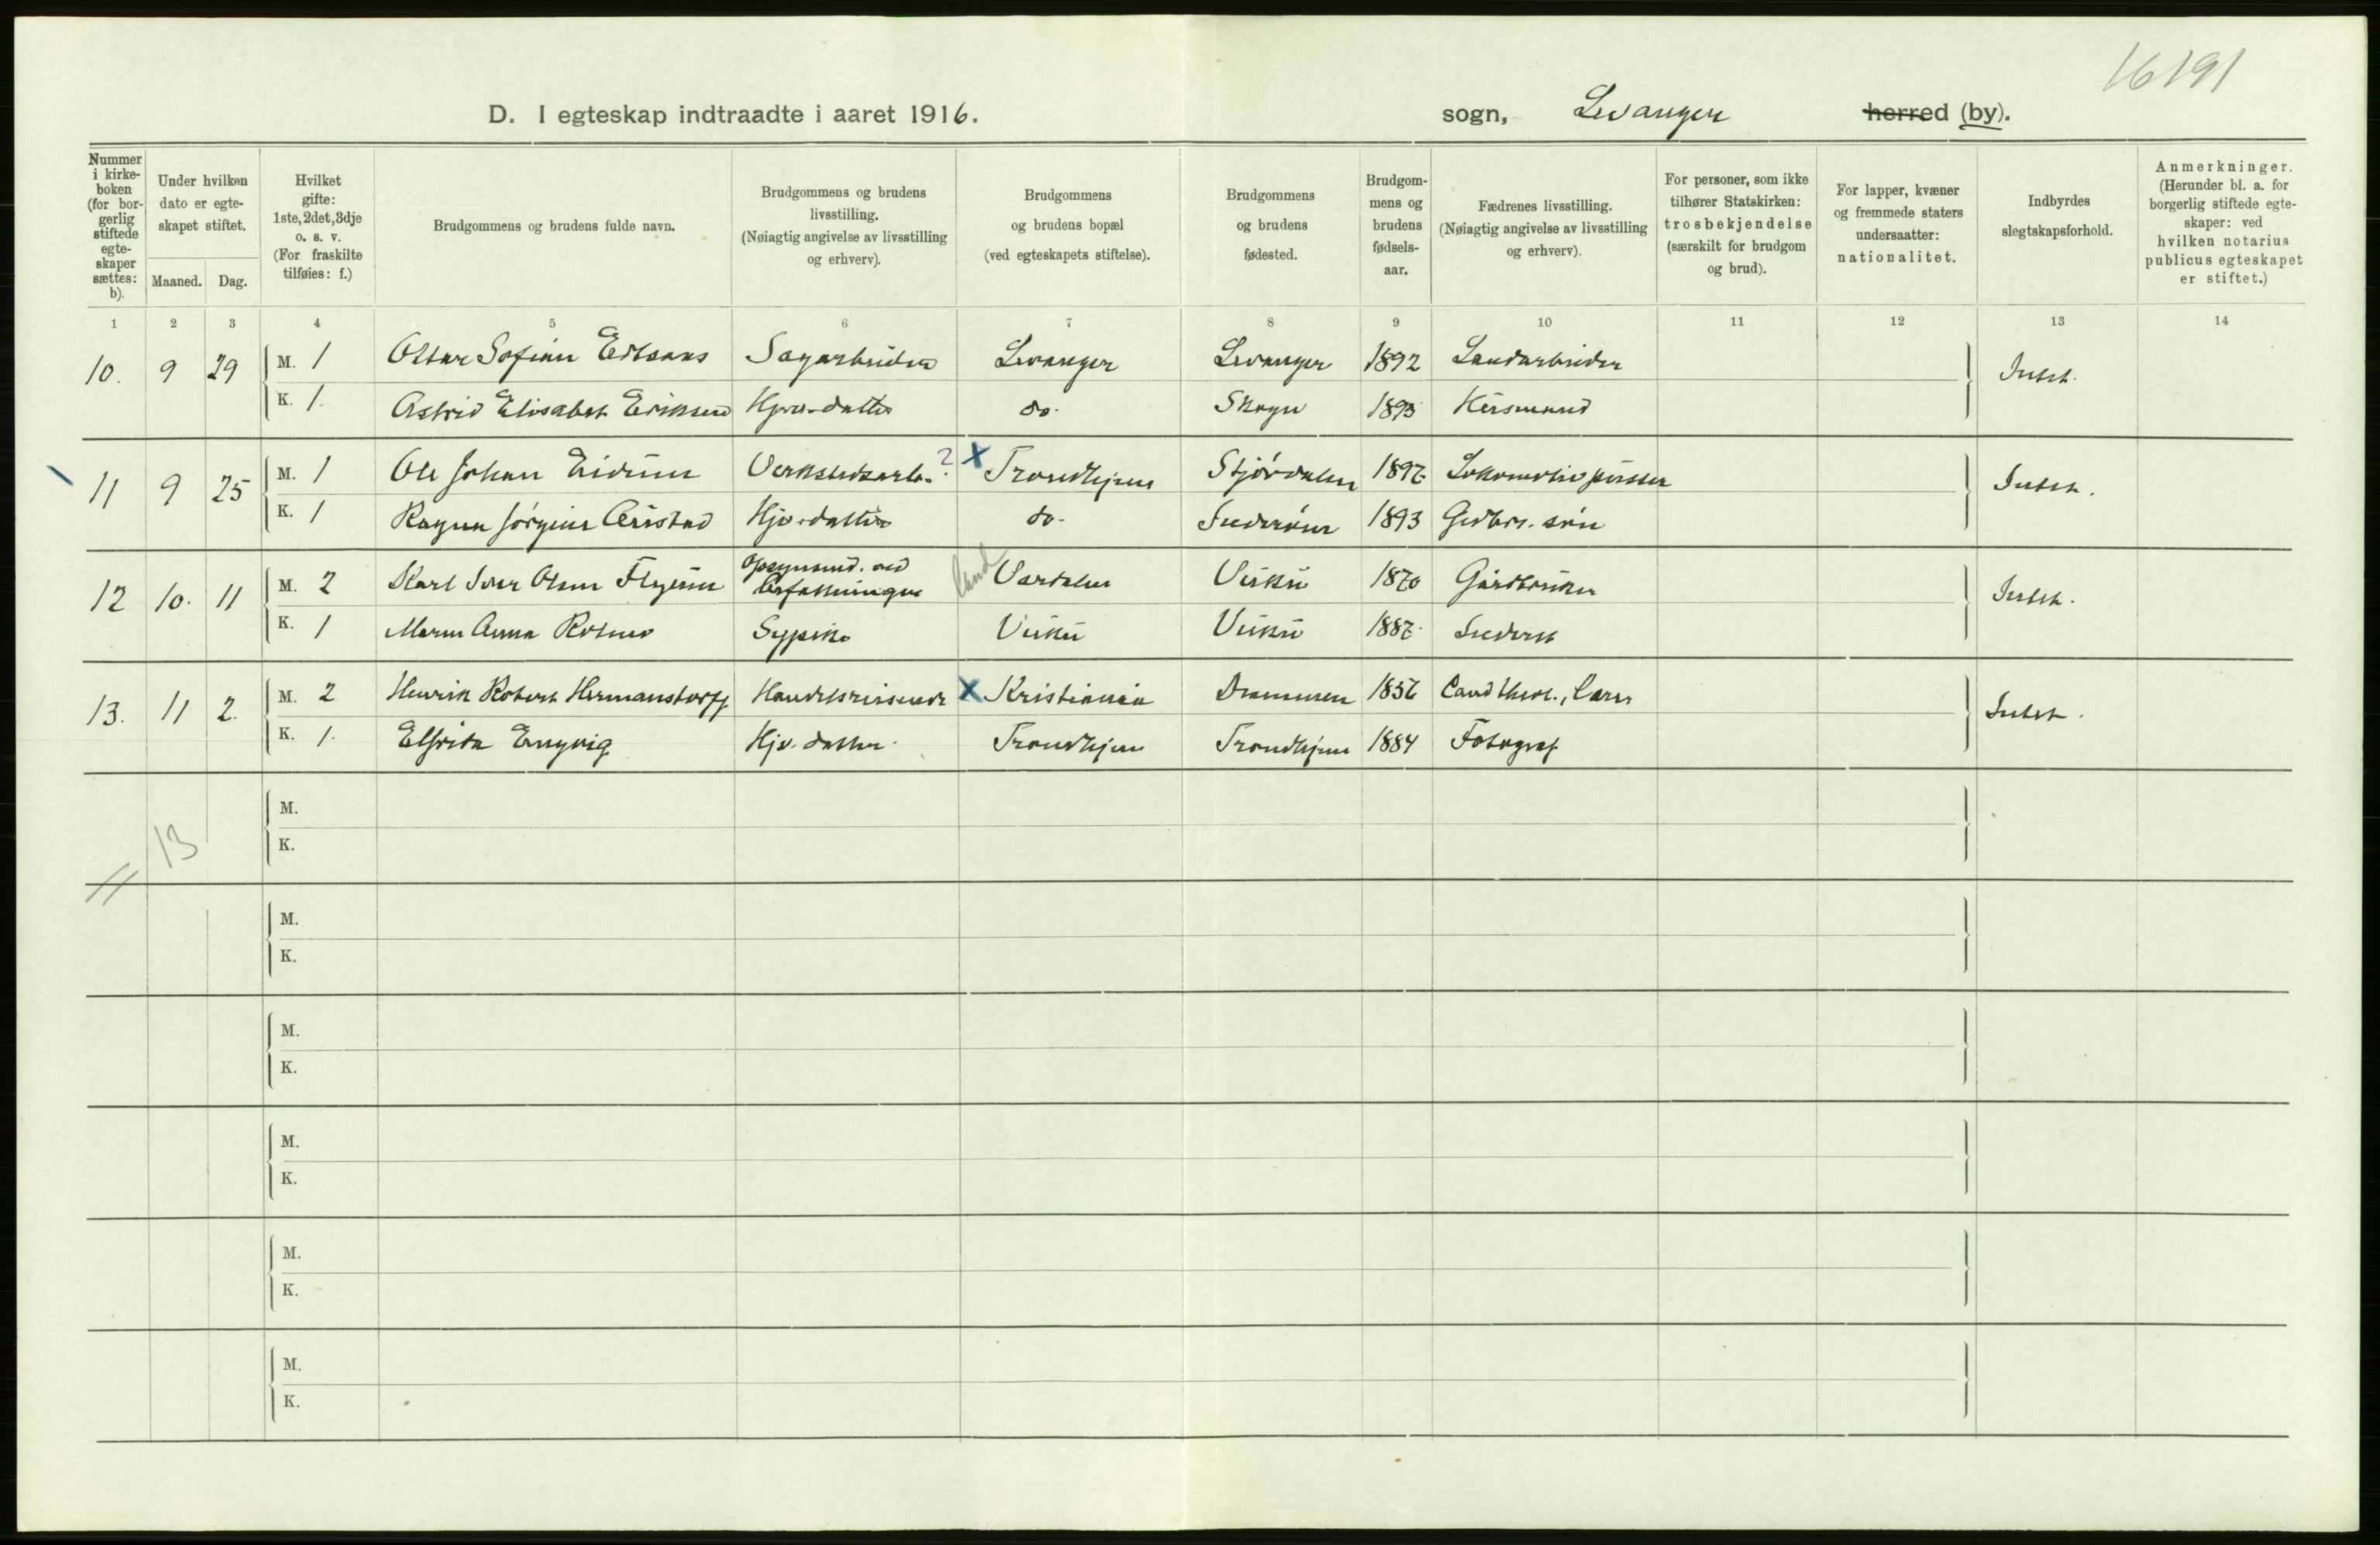 16191
D. I egteskap indtraadte i aaret 1916. sogn, Levanger herred (by).
Nummer i kirkeboken (for borgerlig stiftede egteskaper sættes: b).
Under hvilken dato er egteskapet stiftet.
Maaned. Dag.
Hvilket gifte: 1ste, 2det, 3dje o. s. v. (For fraskilte tilføies: f.)
Brudgommens og brudens fulde navn.
Brudgommens og brudens livsstilling. (Nøiagtig angivelse av livsstilling og erhverv).
Brudgommens og brudens bopæl (ved egteskapets stiftelse).
Brudgommens og brudens fødested.
Brudgommens og brudens fødselsaar.
Fædrenes livsstilling. (Nøiagtig angivelse av livsstilling og erhverv).
For personer, som ikke tilhører Statskirken: trosbekjendelse (særskilt for brudgom og brud).
For lapper, kvæner og fremmede staters undersaatter: nationalitet.
Indbyrdes slegtskapsforhold.
Anmerkninger. (Herunder bl. a. for borgerlig stiftede egteskaper: ved hvilken notarius publicus egteskapet er stiftet.)
1 2 3 4 5 6 7 8 9 10 11 12 13 14
10. 9 29 M. 1 Ottar Sofinn Sagarbeider Levanger Levanger 1892 Landarbeider Intet.
K. 1. Astrid Elisabet Eriksen Hjv.-datter do. Skogn 1893 Husmand
11 9 25 M. 1 Ole Johan Eidum Verkstedsarb. ? X Trondhjem Stjørdalen 1892 Lokomotivpusser Intet.
K. 1 Ragna Jørgine Aristad Hjv.-datter do. Inderøen 1893 Grdbr. søn
12 10. 11 M. 2 Karl Olsen Opsynsmd. ved land Værdalen Vuku 1870 Gårdbruker Intet.
K. 1 Maren Anna Sypike Vuku Vuku 1882 Inderst
13. 11 2. M. 2 Henrik Robert Hermanstorff Handelsreisende X Kristiania Drammen 1856 Cand theol., Lærer Intet.
K. 1. Elfrida Engvig Hjv. datter Trondhjem Trondhjem 1884 Fotograf
M.
13
K.
M.
K.
M.
K.
M.
K.
M.
K.
M.
K.